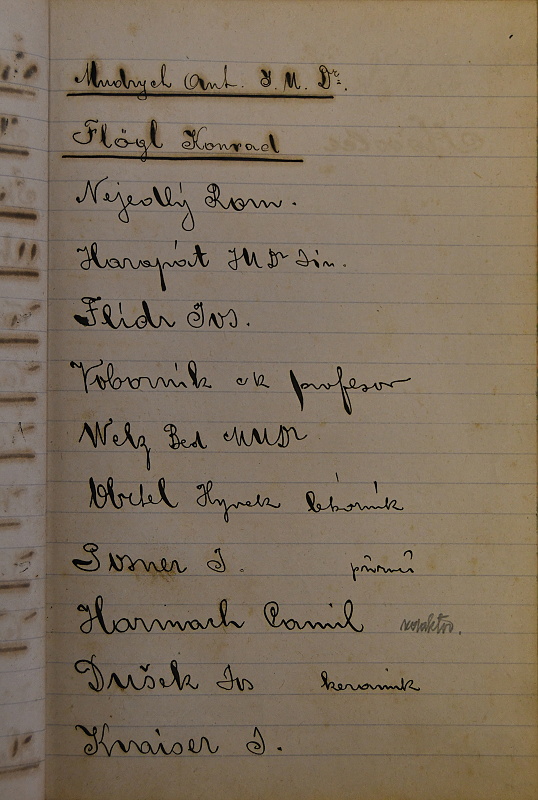 Mudrych Ant. J. U. Dr.
Flögl Konrad
Nejedlý Rom.
Harapát JUDr Sim.
Flídr Jos.
Voborník ck profesor
Welz Bed MUDr
Obrtel Hynek lékárník
Posner J.
Harmach Camil redaktor.
Dušek Jos keramik
Knaiser J.